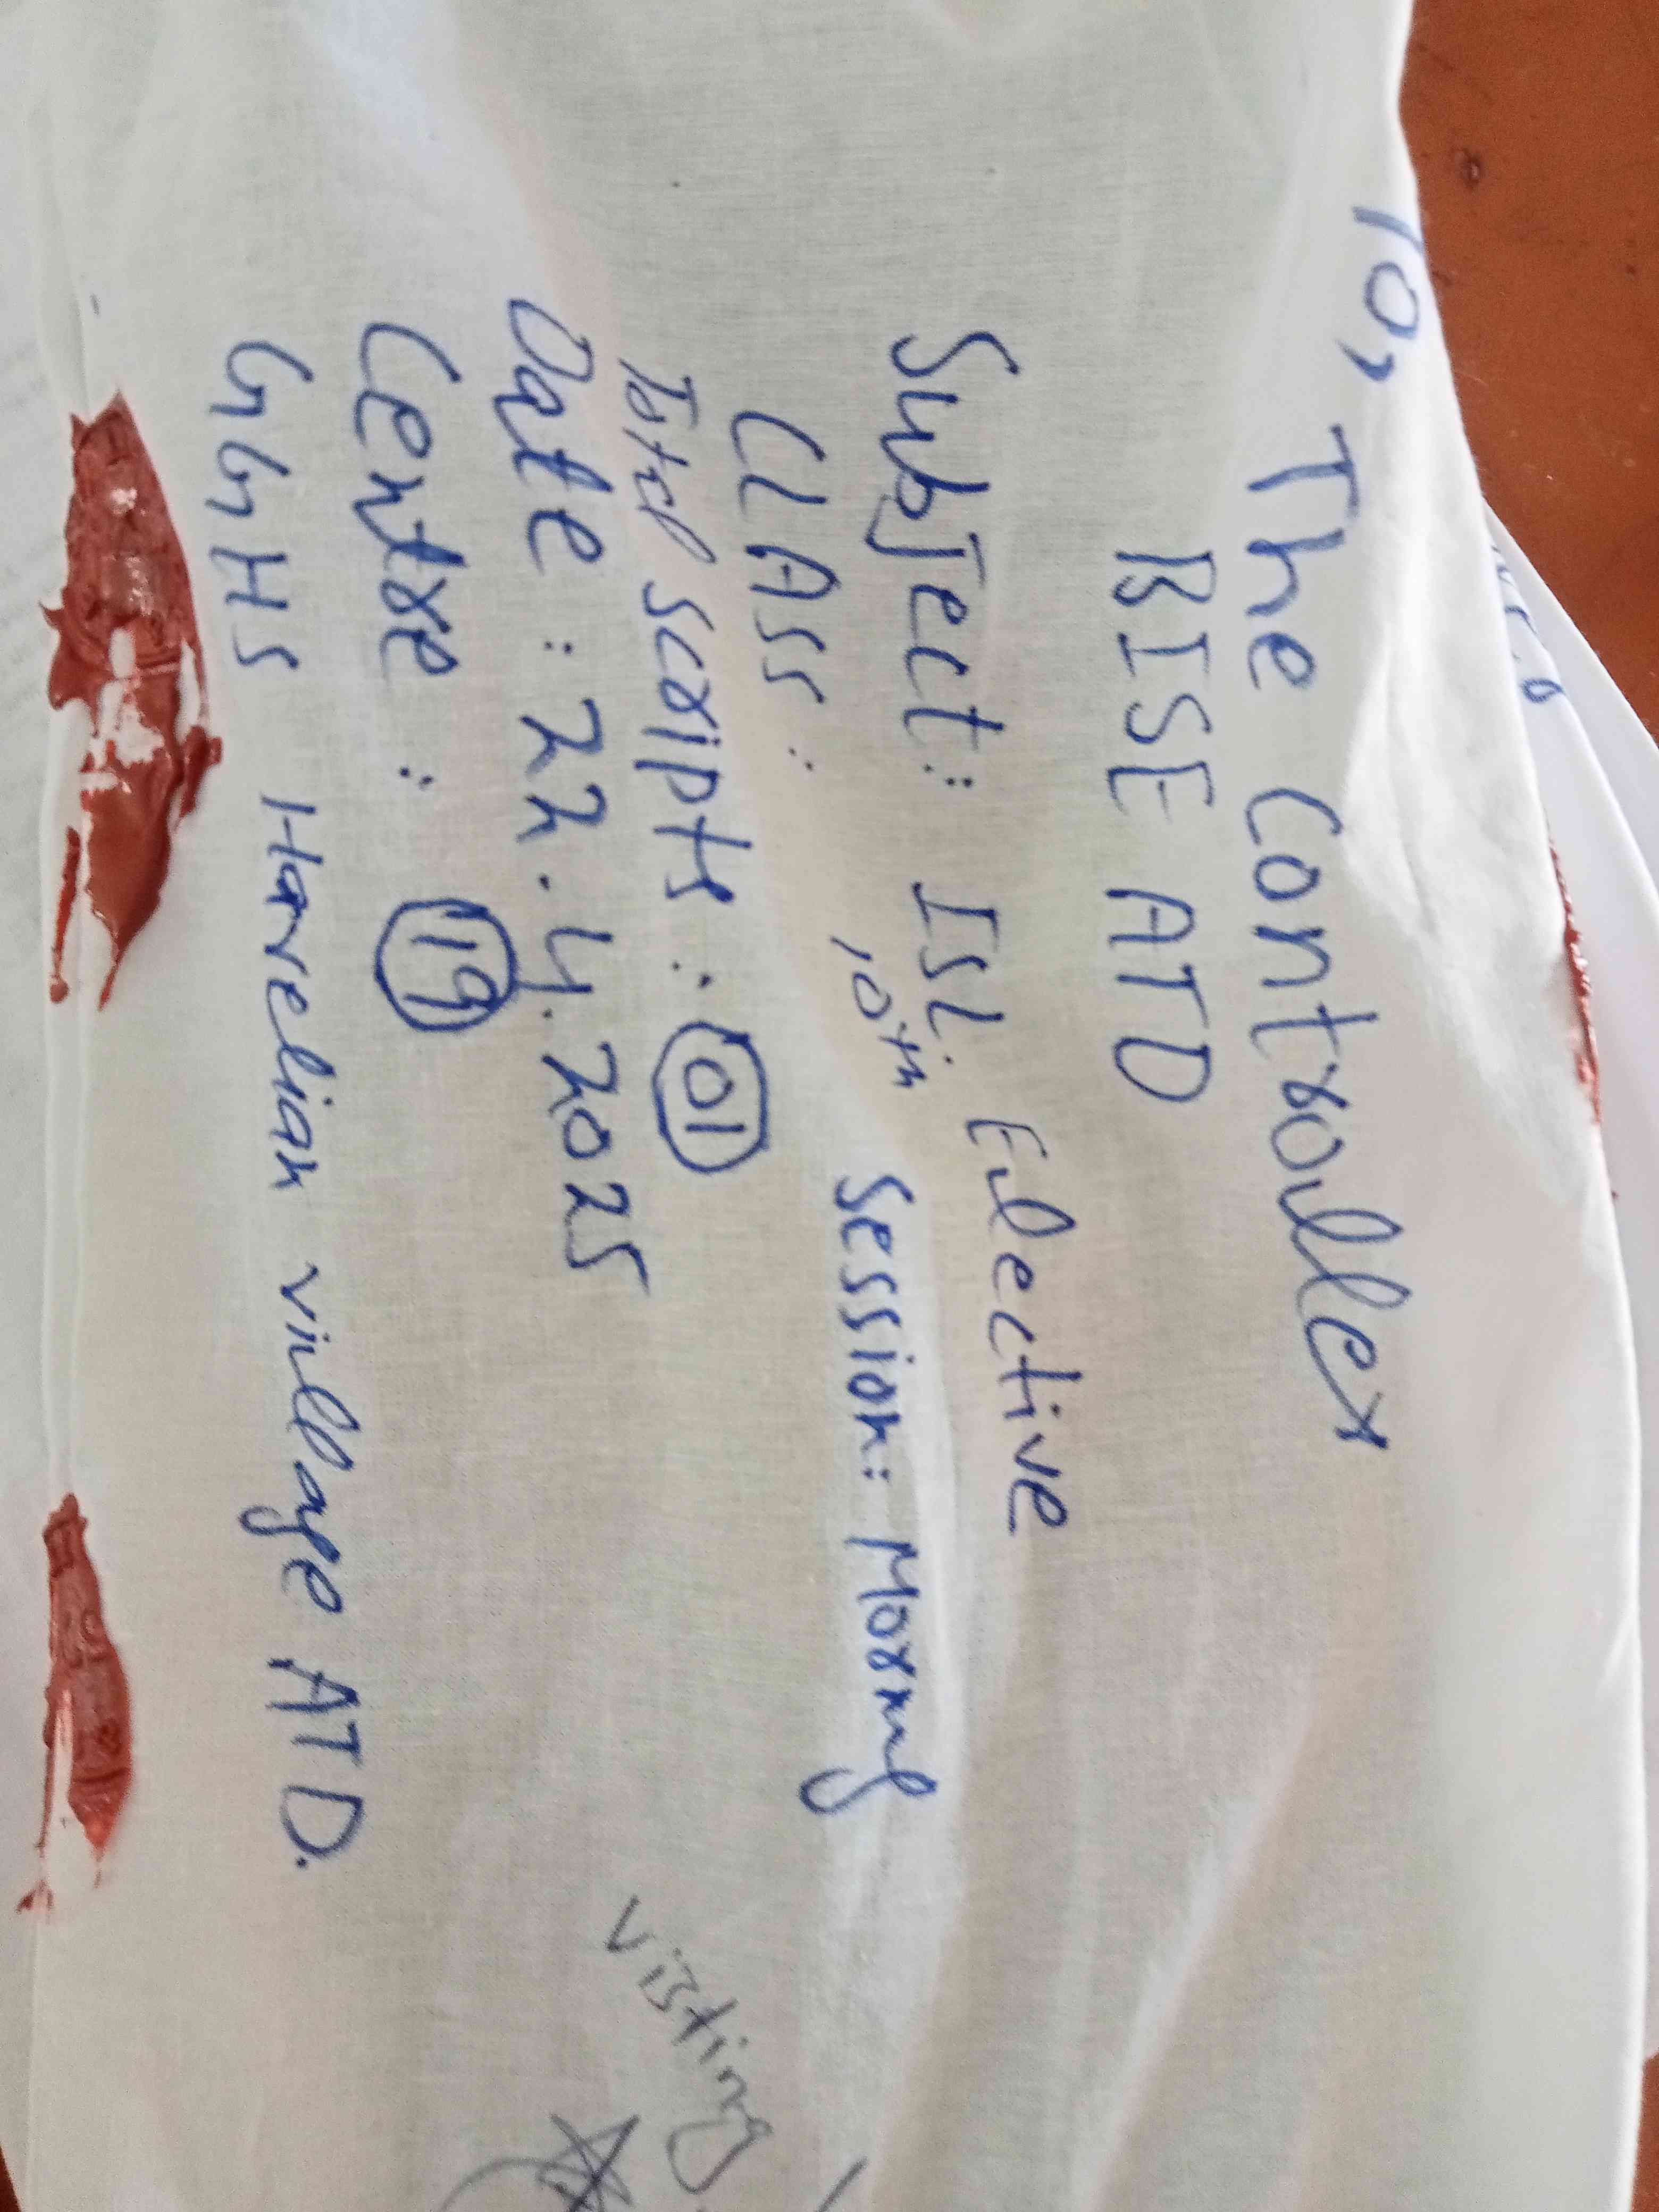 To,
The Controuller
BISE ATD
SubJect: ISL. Elective
CLASS: 10th Session: Morning
Total scripts: 01
Date: 22.4.2025
Centre: 19
GGHS Havelian village ATD.
visting